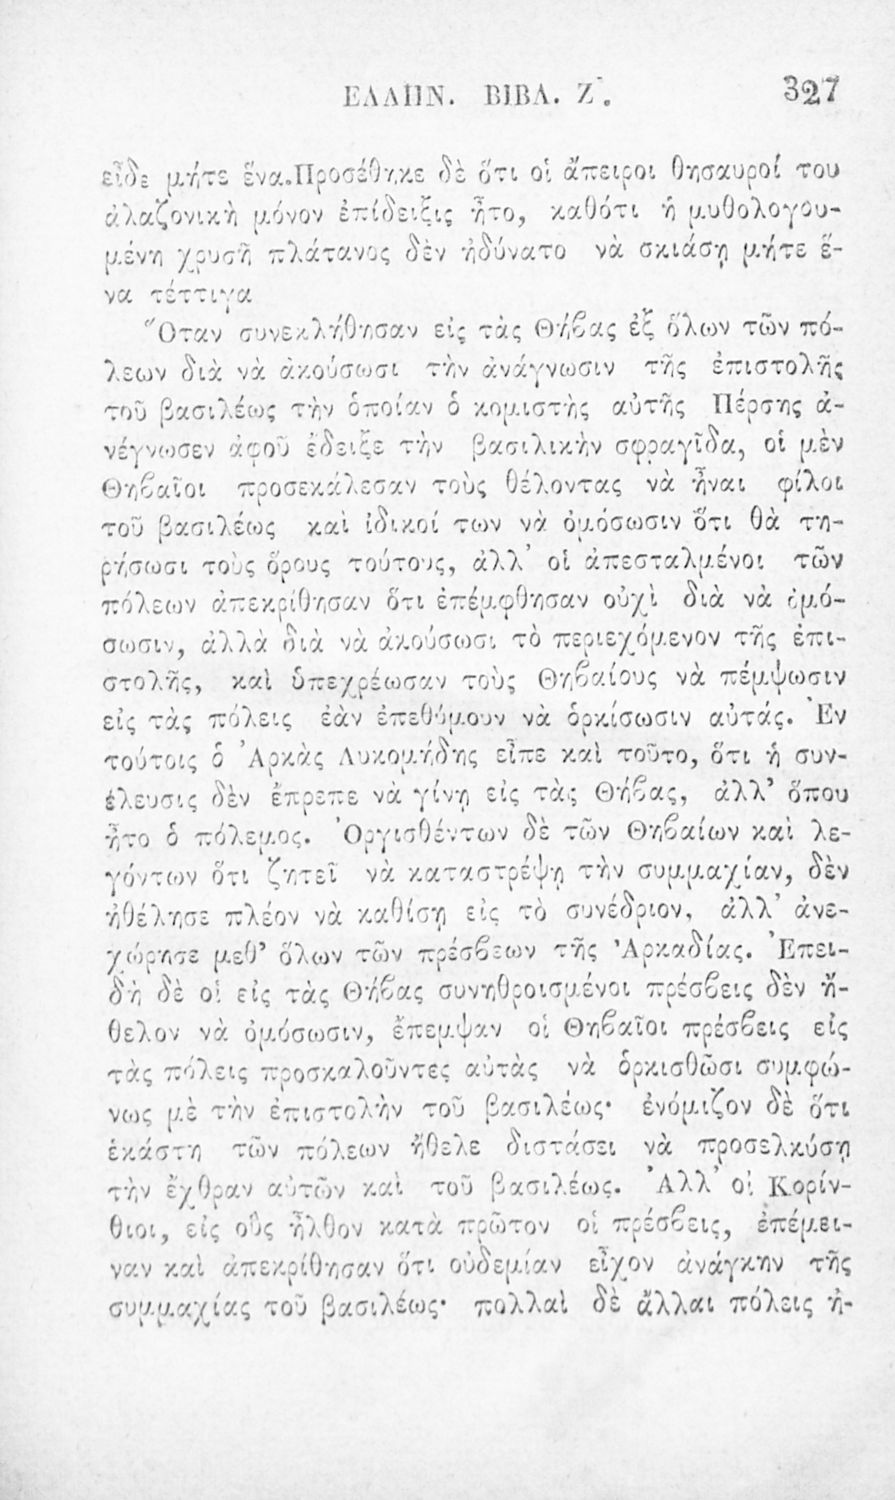 ΕΛΛΗΝ. ΒΙΒΛ. Ζ΄. 327
εἶδε μήτε ἕνα.Προσέθηκε δὲ ὅτι οἱ ἄπειροι θησαυροί του
ἀλαζονικὴ μόνον ἐπίδειξις ἦτο, καθότι ἡ μυθολογου-
μένη χρυσῆ πλάτανος δὲν ἠδύνατο νὰ σκιάσῃ μήτε ἕ-
να τέττιγα
Ὅταν συνεκλήθησαν εἰς τὰς Θήβας ἐξ ὅλων τῶν πό-
λεων διὰ νὰ ἀκούσωσι τὴν ἀνάγνωσιν τῆς ἐπιστολῆς
τοῦ βασιλέως τὴν ὁποίαν ὁ κομιστὴς αὐτῆς Πέρσης ἀ-
νέγνωσεν ἀφοῦ ἔδειξε τὴν βασιλικὴν σφραγῖδα, οἱ μὲν
Θηβαῖοι προσεκάλεσαν τοὺς θέλοντας νὰ ἦναι φίλοι
τοῦ βασιλέως καὶ ἰδικοί των νὰ ὀμόσωσιν ὅτι θὰ τη-
ρήσωσι τοὺς ὅρους τούτους, ἀλλ᾽ οἱ ἀπεσταλμένοι τῶν
πόλεων ἀπεκρίθησαν ὅτι ἐπέμφθησαν οὐχὶ διὰ νὰ ὀμό-
σωσιν, ἀλλὰ διὰ νὰ ἀκούσωσι τὸ περιεχόμενον τῆς ἐπι-
στολῆς, καὶ ὑπεχρέωσαν τοὺς Θηβαίους νὰ πέμψωσιν
εἰς τὰς πόλεις ἐὰν ἐπεθύμουν νὰ ὁρκίσωσιν αὐτάς. Ἐν
τούτοις ὁ Ἀρκὰς Λυκομήδης εἶπε καὶ τοῦτο, ὅτι ἡ συν-
έλευσις δὲν ἔπρεπε νὰ γίνῃ εἰς τὰς Θήβας, ἀλλ᾽ ὅπου
ἦτο ὁ πόλεμος. Ὀργισθέντων δὲ τῶν Θηβαίων καὶ λε-
γόντων ὅτι ζητεῖ νὰ καταστρέψῃ τὴν συμμαχίαν, δὲν
ἠθέλησε πλέον νὰ καθίσῃ εἰς τὸ συνέδριον, ἀλλ᾽ ἀνε-
χώρησε μεθ᾽ ὅλων τῶν πρέσβεων τῆς Ἀρκαδίας. Ἐπει-
δὴ δὲ οἱ εἰς τὰς Θήβας συνηθροισμένοι πρέσβεις δὲν ἤ-
θελον νὰ ὀμόσωσιν, ἔπεμψαν οἱ Θηβαῖοι πρέσβεις εἰς
τὰς πόλεις προσκαλοῦντες αὐτὰς νὰ ὁρκισθῶσι συμφώ-
νως μὲ τὴν ἐπιστολὴν τοῦ βασιλέως· ἐνόμιζον δὲ ὅτι
ἑκάστη τῶν πόλεων ἤθελε διστάσει νὰ προσελκύσῃ
τὴν ἔχθραν αὐτῶν καὶ τοῦ βασιλέως. Ἀλλ᾽ οἱ Κορίν-
θιοι, εἰς οὓς ἦλθον κατὰ πρῶτον οἱ πρέσβεις, ἐπέμει-
ναν καὶ ἀπεκρίθησαν ὅτι οὐδεμίαν εἶχον ἀνάγκην τῆς
συμμαχίας τοῦ βασιλέως· πολλαὶ δὲ ἄλλαι πόλεις ἠ-